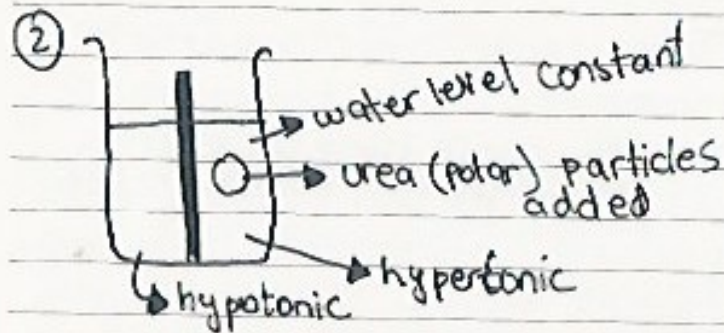 ②
water level constant
urea (polar) particles
added
hypertonic
hypotonic